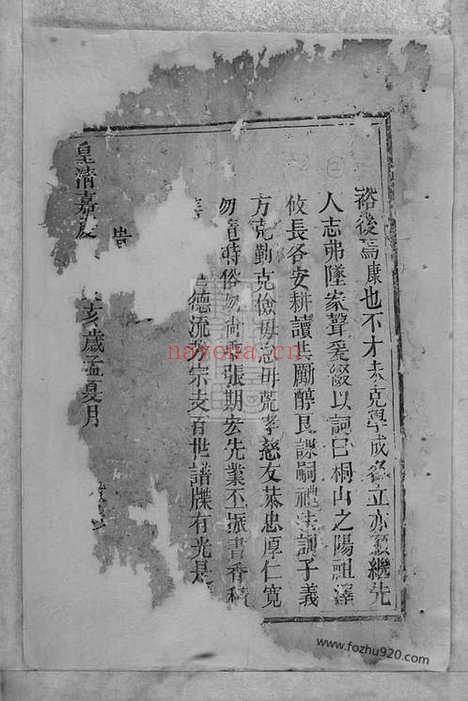 裕後為康也不才未克學成名立亦願繼先
人志弗墜家聲爰綴以詞曰桐山之陽瓃澤
攸長各安耕讀共勵醇良課嗣禮法訓子義
方克勤克儉毋怠毋荒孝慈友恭忠厚仁寬
勿 時俗勿尚 張期宏先業丕振書香
德流 宗支百世譜牒有光是
皇清嘉慶 亥歲孟夏月
nayona.cn
www.fozhu920.com